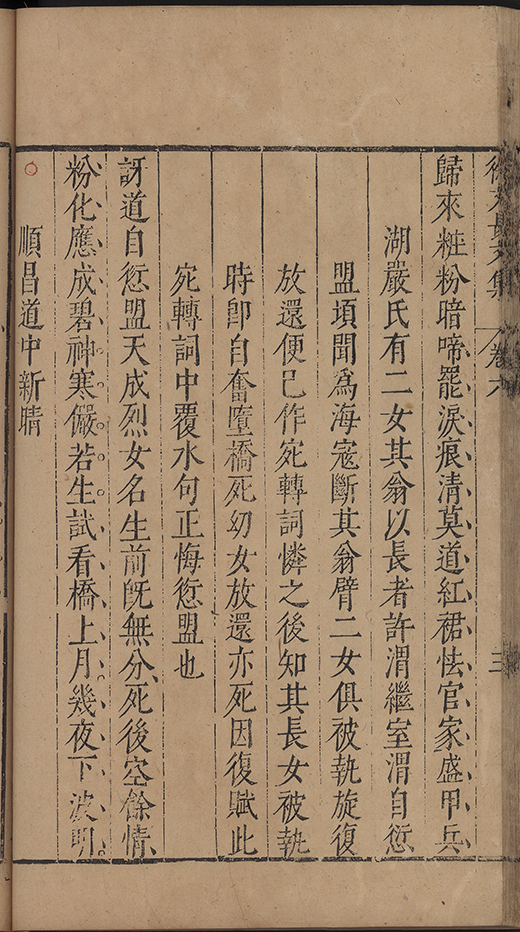 徐文長文集 卷六 三
歸來粧粉暗啼罷淚痕清莫道紅裙怯官家盛甲兵
湖嚴氏有二女其翁以長者許渭繼室渭自愆
盟頃聞爲海寇斷其翁臂二女俱被執旋復
放還便已作宛轉詞憐之後知其長女被執
時卽自奮墮橋死幼女放還亦死因復賦此
宛轉詞中覆水句正悔愆盟也
訝道自愆盟天成烈女名生前旣無分死後空餘情
粉化應成碧神寒儼若生試看橋上月幾夜下波明
順昌道中新晴